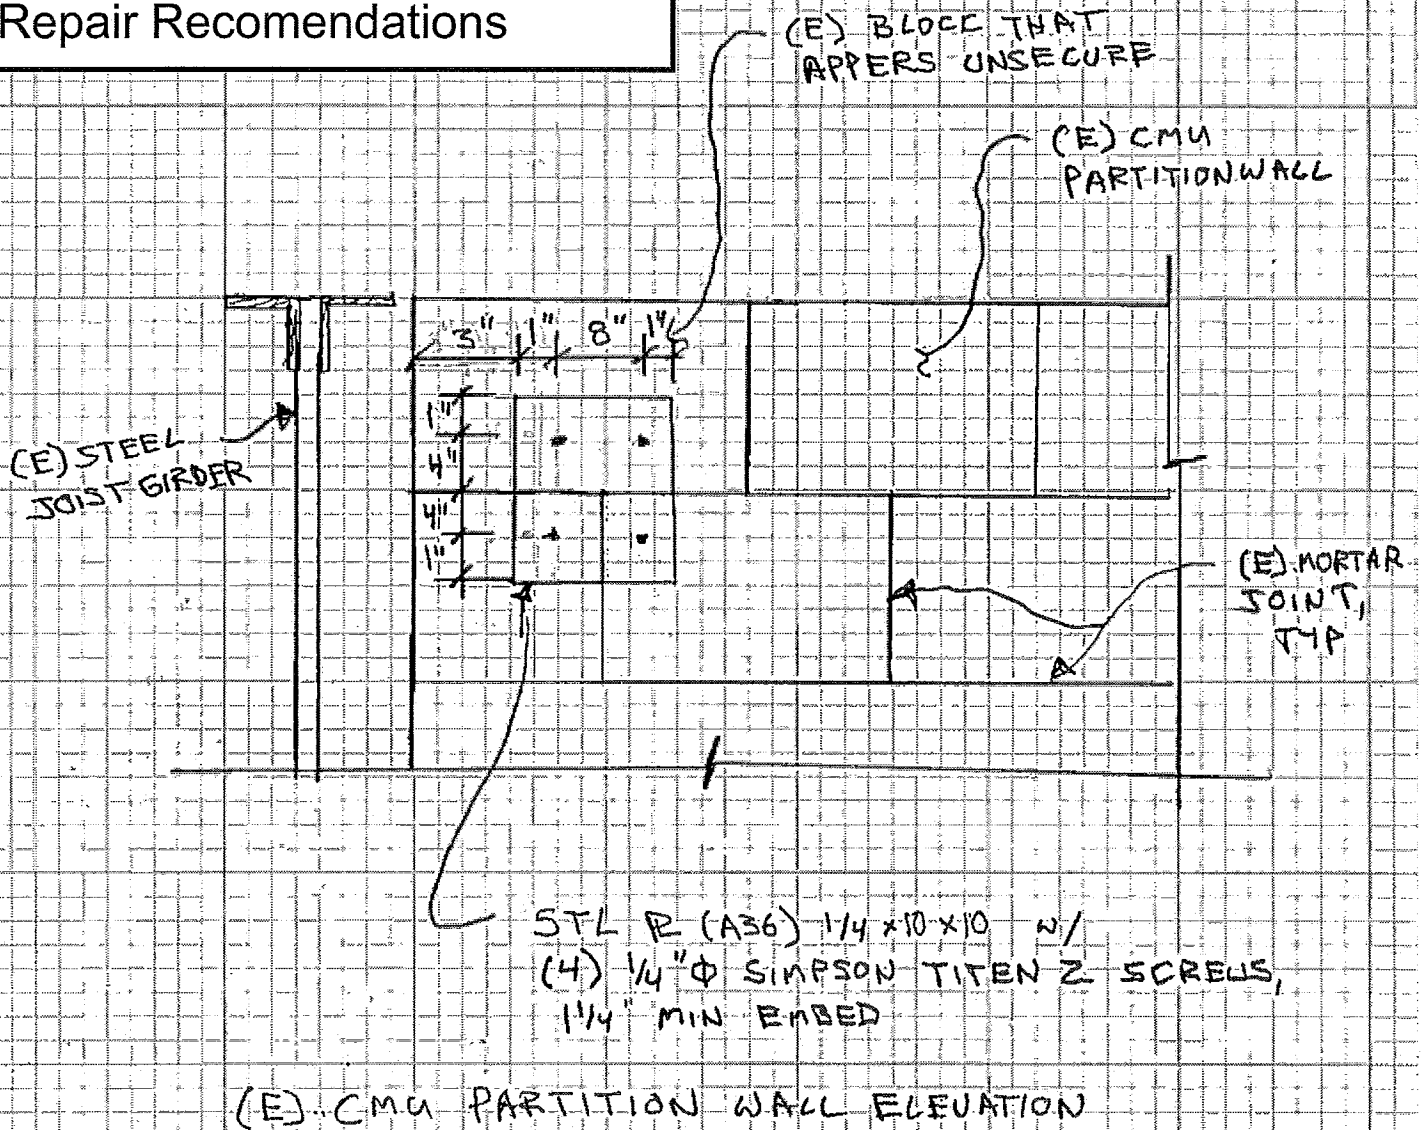 Repair Recomendations
(E) BLOCK THAT
APPERS UNSECURE
(E) CMU
PARTITION WALL
3" 1" 8" 1"
1"
4"
4"
1"
(E) STEEL
JOIST GIRDER
(E) MORTAR
JOINT,
TYP
STL PL (A36) 1/4 x10 x10 w/
(4) 1/4"Φ SIMPSON TITEN 2 SCREWS,
1 1/4" MIN EMBED
(E) CMU PARTITION WALL ELEVATION